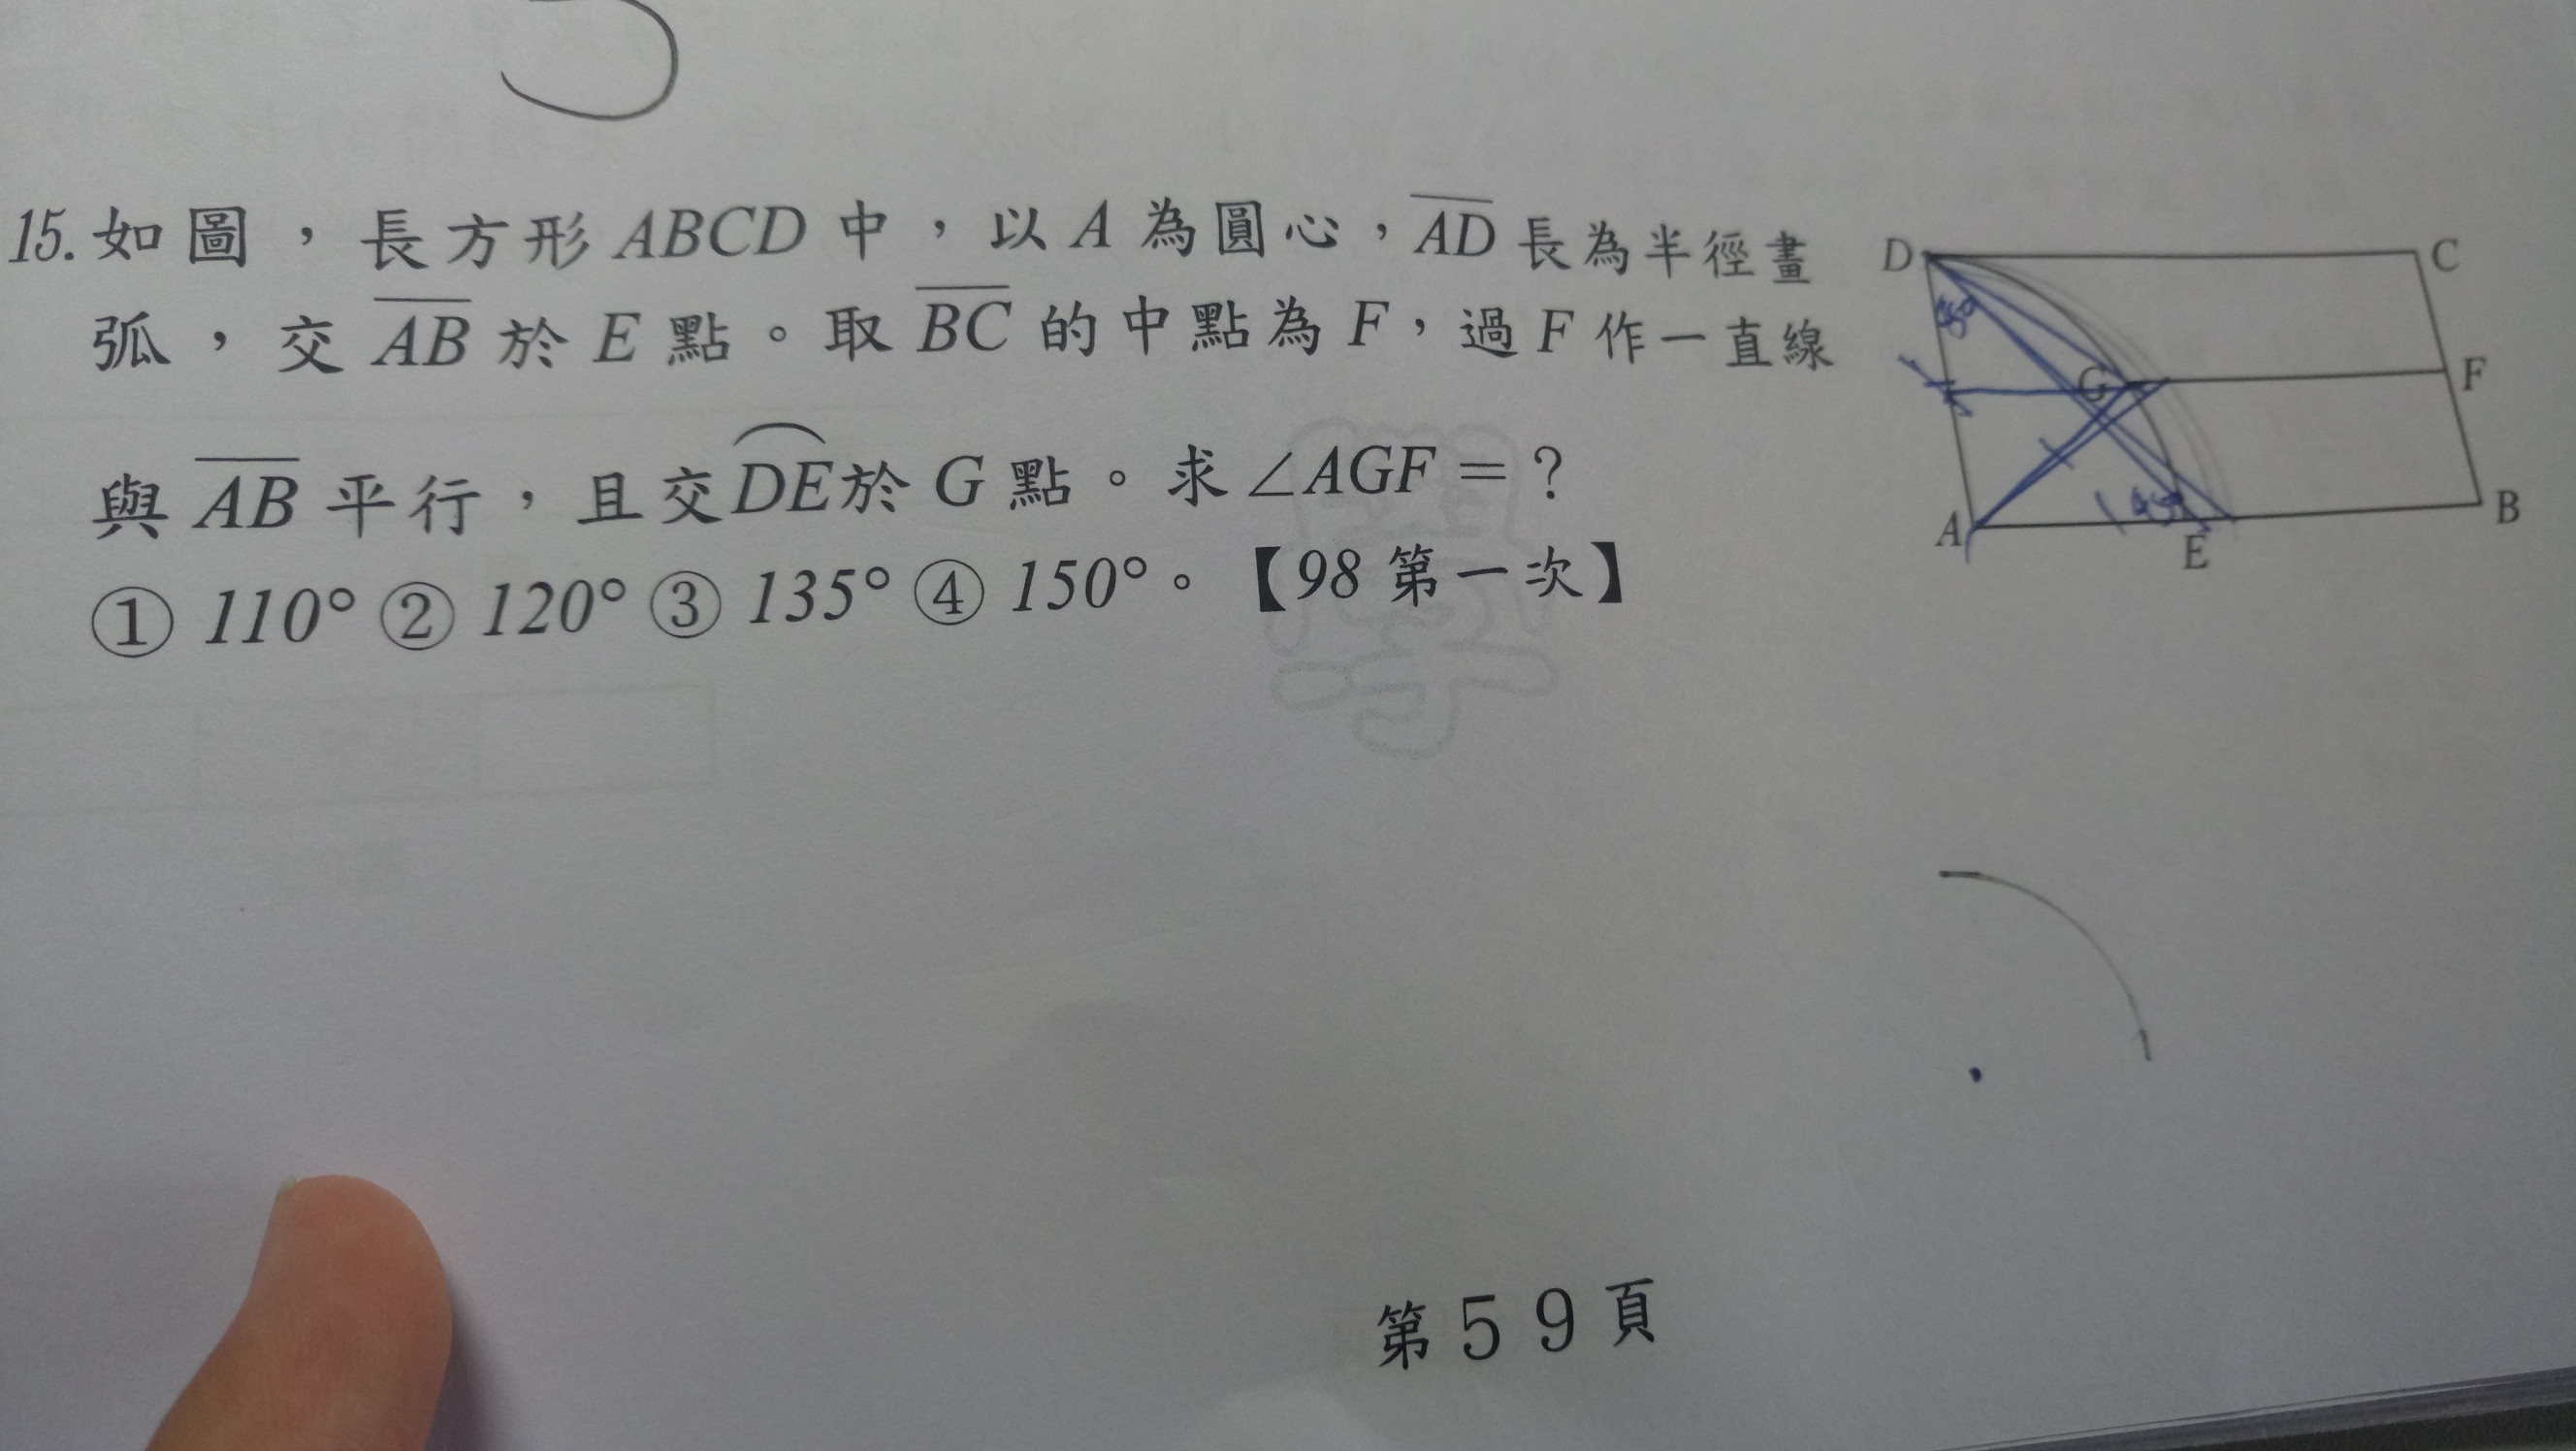 15. 如圖，長方形ABCD中，以A為圓心，AD長為半徑畫
弧，交AB於E點。取BC的中點為F，過F作一直線
與AB平行，且交DE於G點。求∠AGF=？
① 110° ② 120° ③ 135° ④ 150°。【98 第一次】
D
C
G
F
A
E
B
第59頁